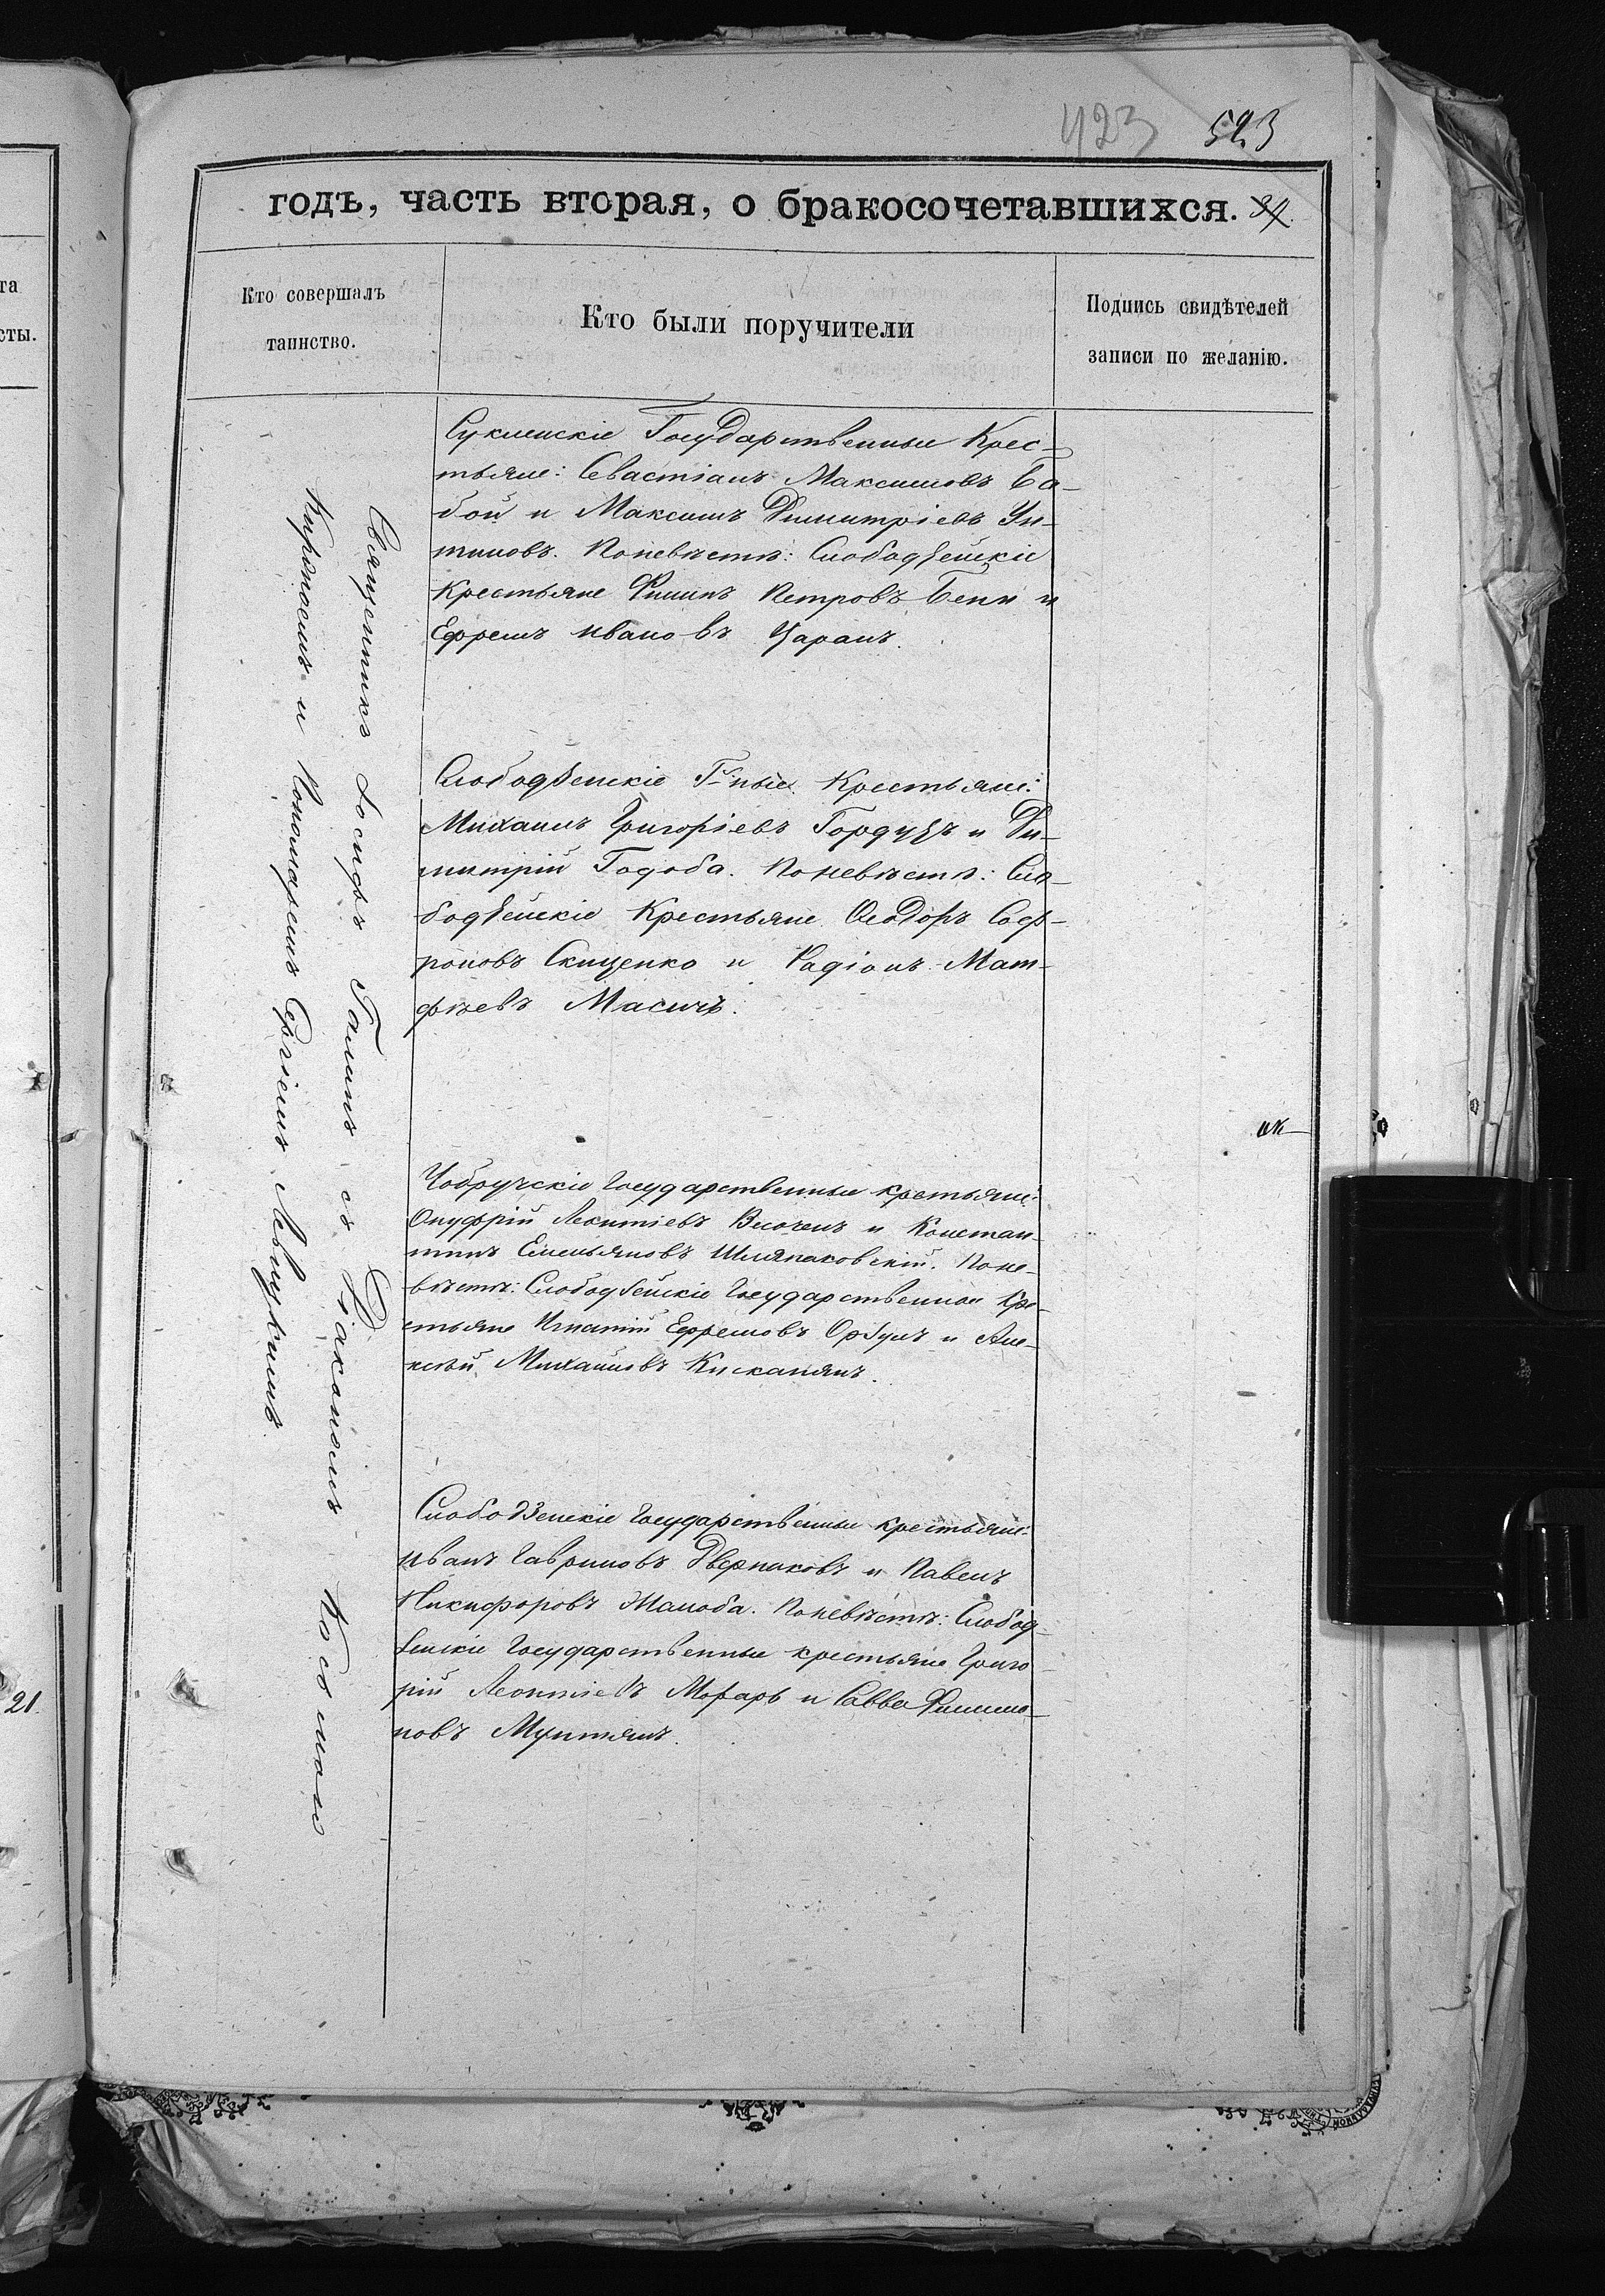 423 523
годъ, часть вторая, о бракосочетавшихся. 34.
Кто совершалъ
таинство.
Кто были поручители
Подпись свидѣтелей
записи по желанію.
та
сты.
21.
Священникъ Іосифъ Галинъ съ Діакономъ
и Пономаремъ Сергіемъ Левицкимъ
Суклейскіе Государственные Крес-
тьяне: Севастіанъ Максимовъ Ба-
бой и Максимъ Димитріевъ Ун-
тиловъ. Поневѣстѣ: Слободзейскіе
Крестьяне Филипъ Петровъ Бени и
Ефремъ Ивановъ Царанъ.
Слободзейскіе Г-ные Крестьяне:
Михаилъ Григоріевъ Гордузъ и Ди-
митрій Годоба. Поневѣстѣ: Сло-
бодзейскіе Крестьяне Ѳеодоръ Соф-
роновъ Скиценко и Радіонъ Мат-
фѣевъ Масичъ.
Чобручскіе Государственные крестьяне:
Онуфрій Леонтіевъ и Констан-
тинъ Емельяновъ Шляпаковскій. Поне-
вѣстѣ: Слободзейскіе Государственные Кре-
стьяне Игнатій Ефремовъ Орзулъ и Але-
ксѣй Михайловъ Кисканянъ.
Слободзейскіе Государственные крестьяне:
Иванъ Гавриловъ Дверпаковъ и Павелъ
Никифоровъ Жалоба. Поневѣстѣ: Слобод-
зейскіе Государственные крестьяне Григо-
рій Леонтіевъ Морарь и Савва Филимо-
новъ Мунтянъ.